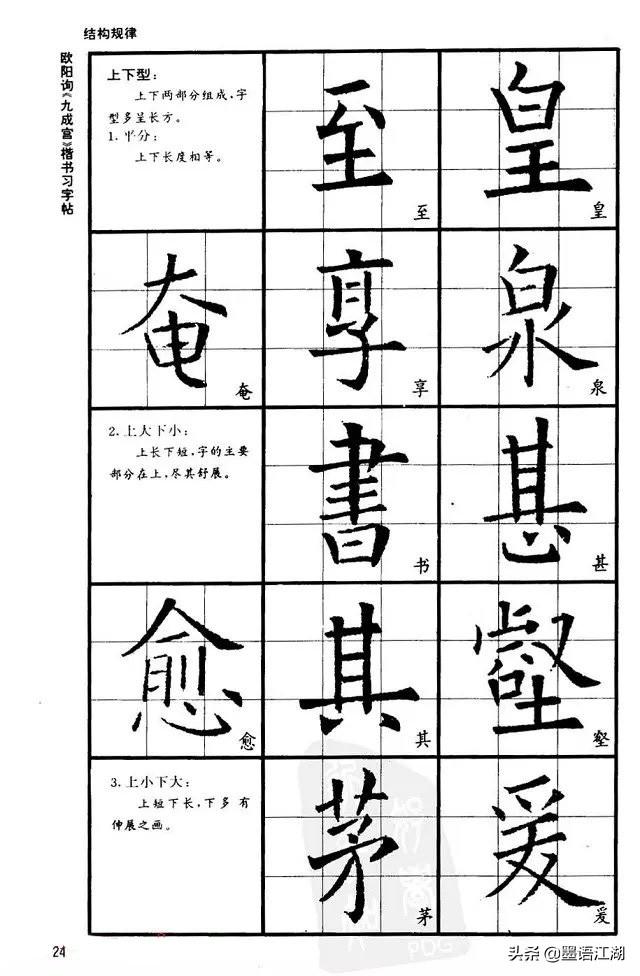 结构规律
欧阳询《九成宫》楷书习字帖
上下型：
上下两部分组成，字
型多呈长方。
1. 平分：
上下长度相等。
至
至
皇
皇
奄
奄
享
享
泉
泉
2. 上大下小：
上长下短，字的主要
部分在上，尽其舒展。
書
书
甚
甚
愈
愈
其
其
壑
壑
3. 上小下大：
上短下长，下多有
伸展之画。
茅
茅
爰
爰
24
PDG
头条 @墨语江湖